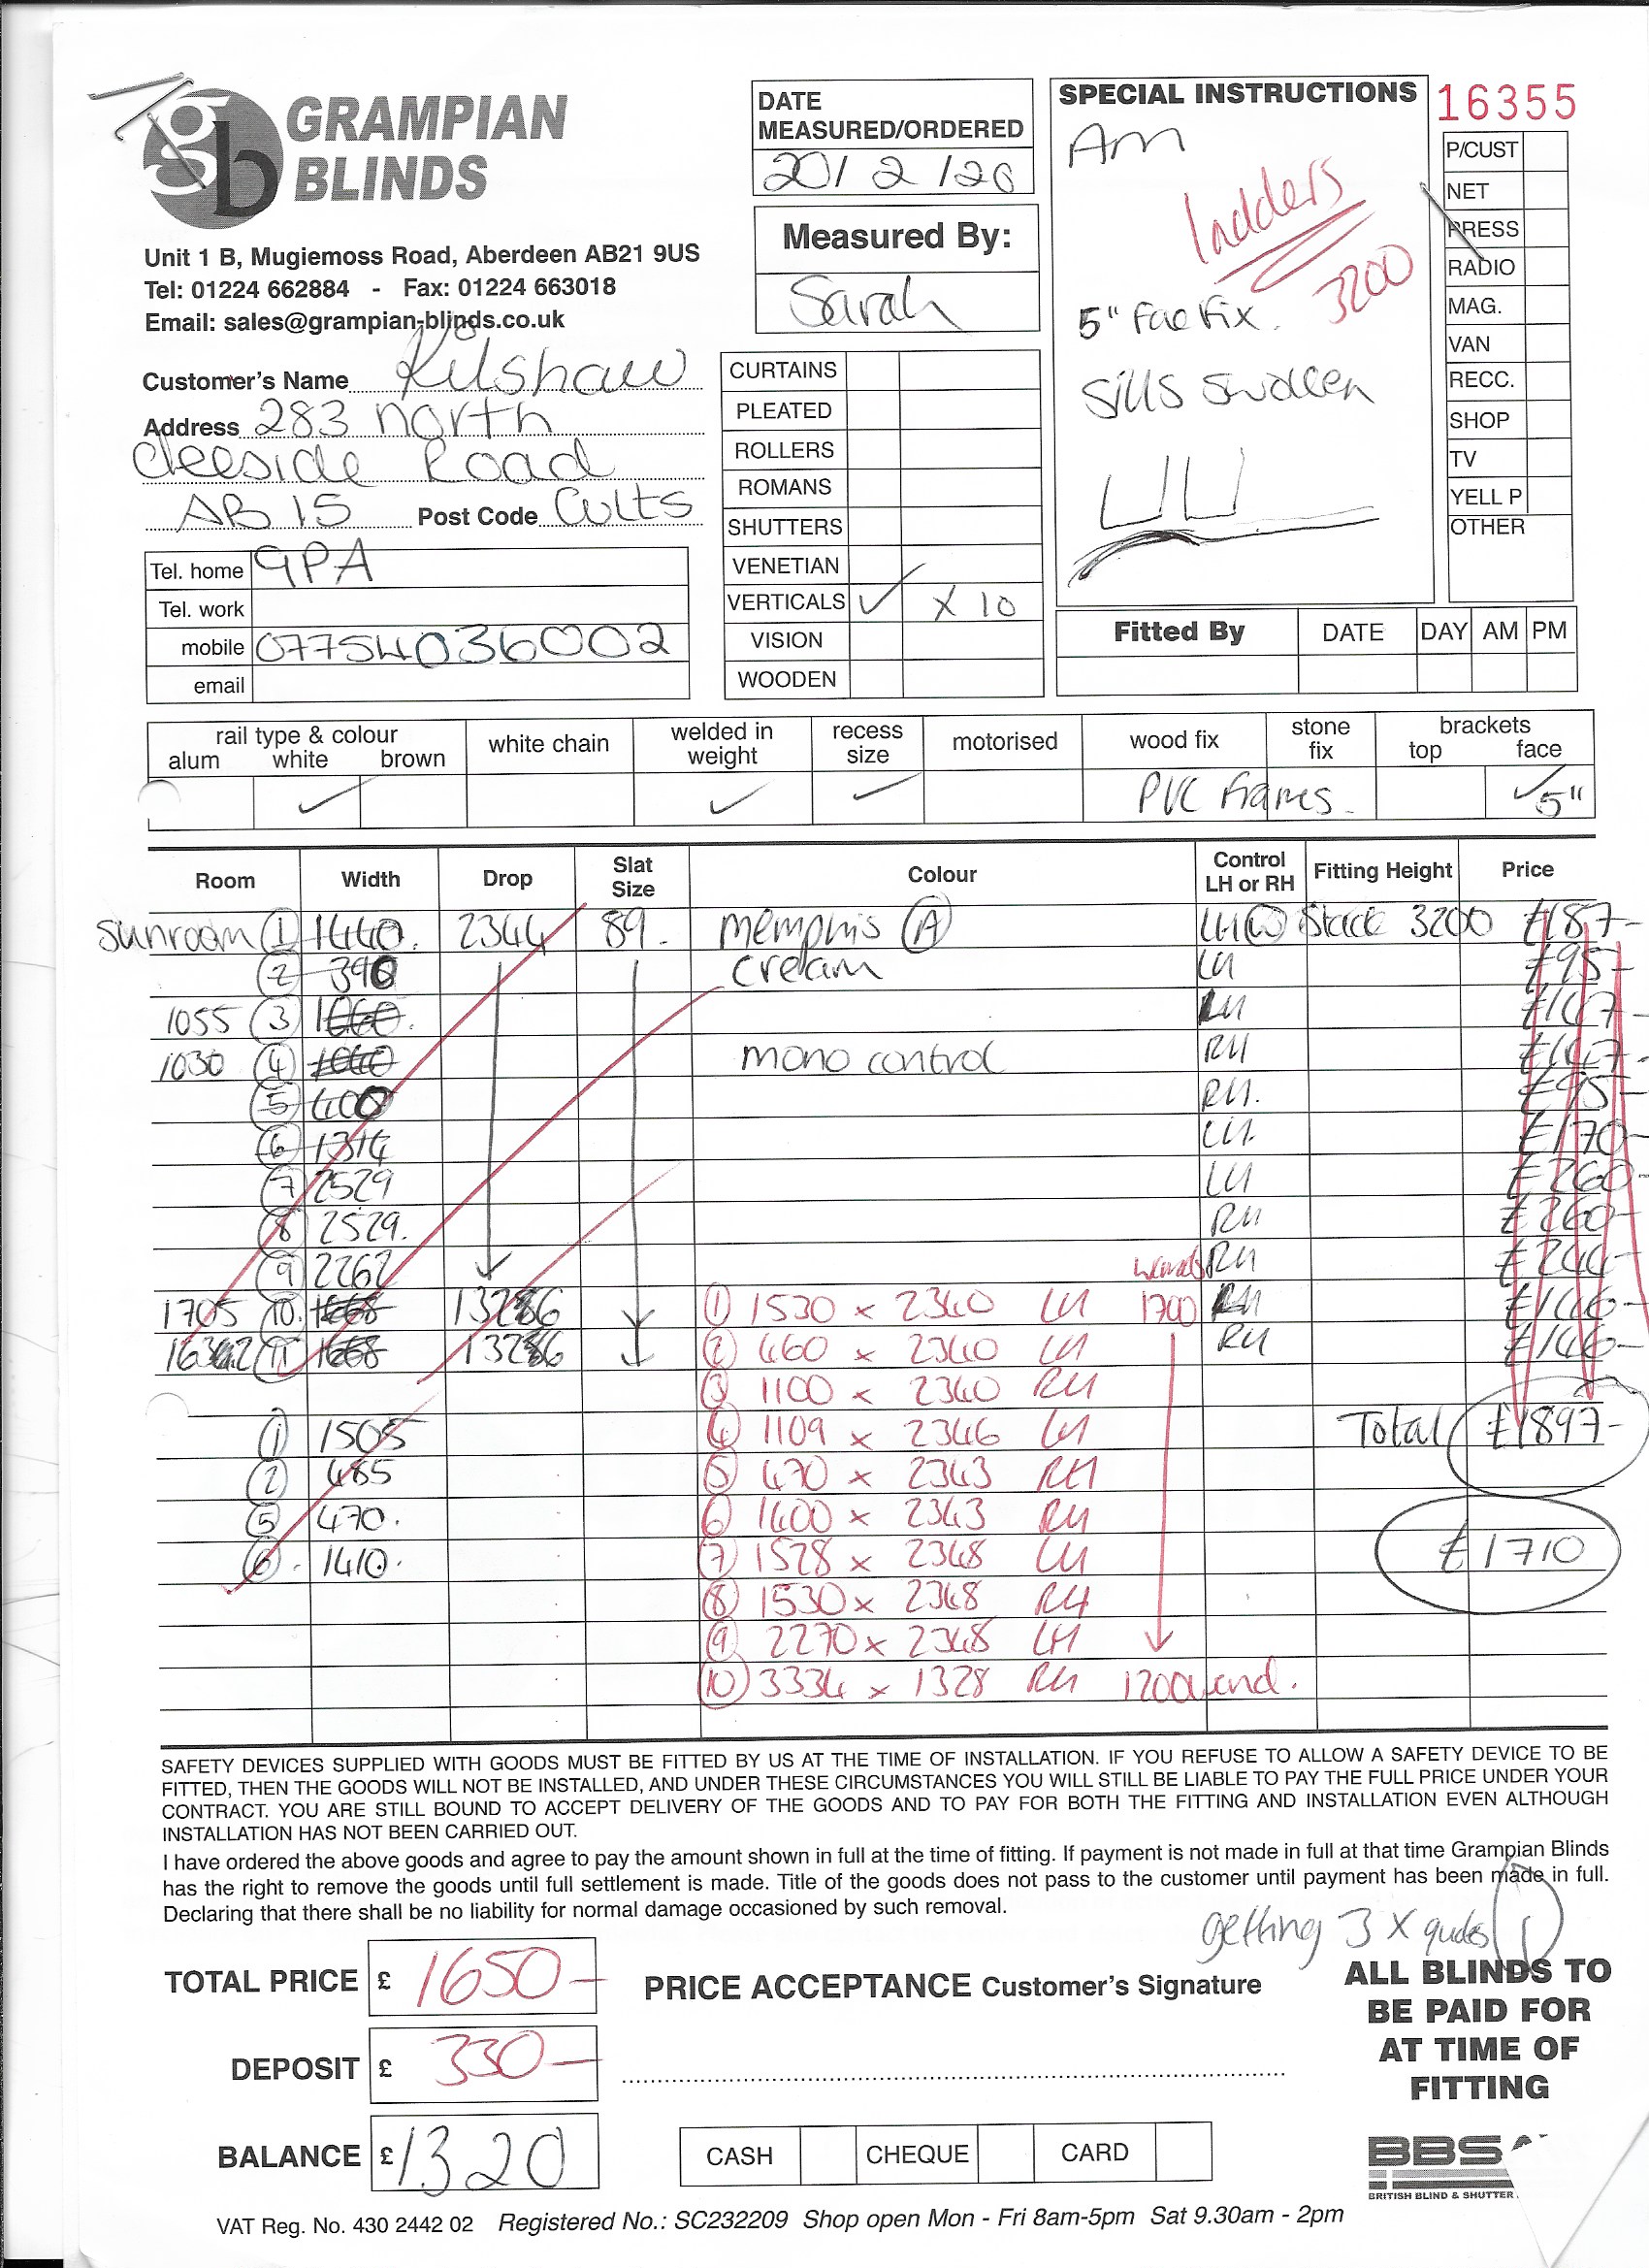 GRAMPIAN
BLINDS
Unit 1 B, Mugiemoss Road, Aberdeen AB21 9US
Tel: 01224 662884 - Fax: 01224 663018
Email: sales@grampian-blinds.co.uk
Customer's Name Kilshaw
Address 283 north
deeside Road
AB 15 Post Code Cults
Tel. home 9PA
Tel. work
mobile 07754036002
email
DATE
MEASURED/ORDERED
20/2/20
Measured By:
Sarah
CURTAINS
PLEATED
ROLLERS
ROMANS
SHUTTERS
VENETIAN
VERTICALS ✓ X 10
VISION
WOODEN
SPECIAL INSTRUCTIONS
Am
ladders
3200
5" Face Fix.
Sills Swollen
16355
P/CUST
NET
PRESS
RADIO
MAG.
VAN
RECC.
SHOP
TV
YELL P
OTHER
Fitted By DATE DAY AM PM
rail type & colour
alum white brown
white chain
welded in weight
recess size
motorised
wood fix
stone fix
brackets
top face
✓ ✓ ✓ PVC frames. ✓5"
Room Width Drop Slat Size Colour Control LH or RH Fitting Height Price
sunroom 1 1440. 2344 89. memphis A LH Stack 3200 £187-
2 390 cream LH £95-
1055 3 1060. LH £147-
1030 4 1040 mono control RH £147-
5 400 RH. £95-
6 1314 LH. £170-
7 2529 LH £260-
8 2529. RH £260-
9 2262 wands RH £244-
1705 10. 1668 1 1530 x 2340 LH 1700 RH £146-
11 1668 2 460 x 2340 LH RH £146-
3 1100 x 2340 RH
1 1505 4 1109 x 2346 LH Total £1897-
2 485 5 470 x 2343 RH
5 470. 6 1400 x 2343 RH
6. 1410. 7 1528 x 2348 LH £1710
8 1530 x 2348 RH
9 2270 x 2348 LH
10 3334 x 1328 RH 1200 wand.
SAFETY DEVICES SUPPLIED WITH GOODS MUST BE FITTED BY US AT THE TIME OF INSTALLATION. IF YOU REFUSE TO ALLOW A SAFETY DEVICE TO BE
FITTED, THEN THE GOODS WILL NOT BE INSTALLED, AND UNDER THESE CIRCUMSTANCES YOU WILL STILL BE LIABLE TO PAY THE FULL PRICE UNDER YOUR
CONTRACT. YOU ARE STILL BOUND TO ACCEPT DELIVERY OF THE GOODS AND TO PAY FOR BOTH THE FITTING AND INSTALLATION EVEN ALTHOUGH
INSTALLATION HAS NOT BEEN CARRIED OUT.
I have ordered the above goods and agree to pay the amount shown in full at the time of fitting. If payment is not made in full at that time Grampian Blinds
has the right to remove the goods until full settlement is made. Title of the goods does not pass to the customer until payment has been made in full.
Declaring that there shall be no liability for normal damage occasioned by such removal.
getting 3 x quotes
TOTAL PRICE £ 1650-
DEPOSIT £ 330-
BALANCE £ 1320
PRICE ACCEPTANCE Customer's Signature
CASH CHEQUE CARD
ALL BLINDS TO
BE PAID FOR
AT TIME OF
FITTING
BBSA
BRITISH BLIND & SHUTTER
VAT Reg. No. 430 2442 02 Registered No.: SC232209 Shop open Mon - Fri 8am-5pm Sat 9.30am - 2pm